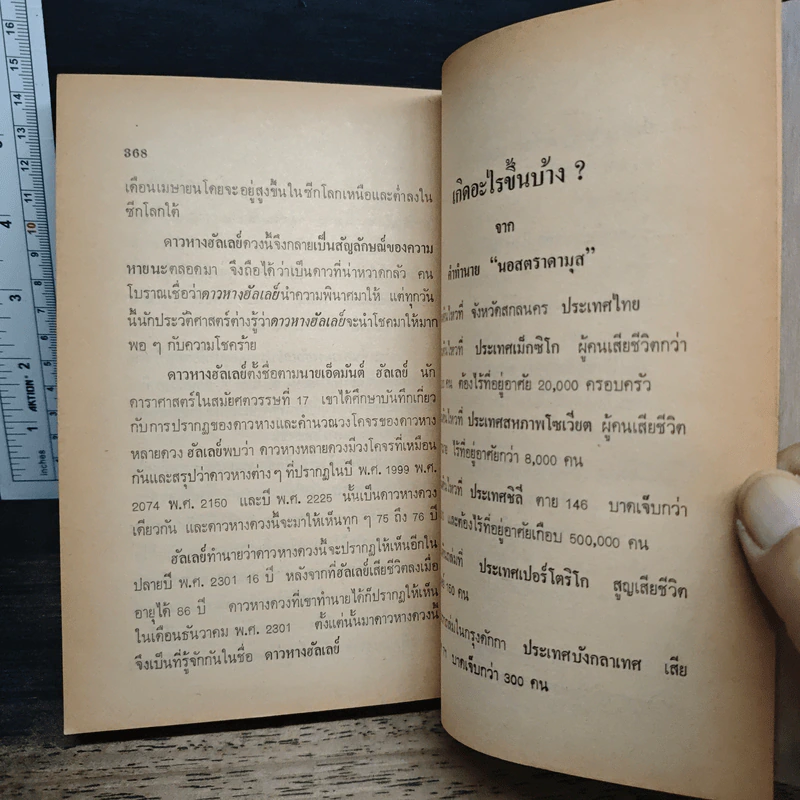 368
เดือนเมษายนโดยจะอยู่สูงขึ้นในซีกโลกเหนือและต่ำลงใน
ซีกโลกใต้
ดาวหางฮัลเลย์ดวงนี้จึงกลายเป็นสัญลักษณ์ของความ
หายนะตลอดมา จึงถือได้ว่าเป็นดาวที่น่าหวาดกลัว คน
โบราณเชื่อว่าดาวหางฮัลเลย์นำความพินาศมาให้ แต่ทุกวัน
นี้นักประวัติศาสตร์ต่างรู้ว่าดาวหางฮัลเลย์จะนำโชคมาให้มาก
พอ ๆ กับความโชคร้าย
ดาวหางฮัลเลย์ตั้งชื่อตามนายเอ็ดมันต์ ฮัลเลย์ นัก
ดาราศาสตร์ในสมัยศตวรรษที่ 17 เขาได้ศึกษาบันทึกเกี่ยว
กับการปรากฏของดาวหางและคำนวณวงโคจรของดาวหาง
หลายดวง ฮัลเลย์พบว่า ดาวหางหลายดวงมีวงโคจรที่เหมือน
กันและสรุปว่าดาวหางต่าง ๆ ที่ปรากฏในปี พ.ศ. 1999 พ.ศ.
2074 พ.ศ. 2150 และปี พ.ศ. 2225 นั้นเป็นดาวหางดวง
เดียวกัน และดาวหางดวงนี้จะมาให้เห็นทุก ๆ 75 ถึง 76 ปี
ฮัลเลย์ทำนายว่าดาวหางดวงนี้จะปรากฏให้เห็นอีกใน
ปลายปี พ.ศ. 2301 16 ปี หลังจากที่ฮัลเลย์เสียชีวิตลงเมื่อ
อายุได้ 86 ปี ดาวหางดวงที่เขาทำนายได้ก็ปรากฏให้เห็น
ในเดือนธันวาคม พ.ศ. 2301 ตั้งแต่นั้นมาดาวหางดวงนี้
จึงเป็นที่รู้จักกันในชื่อ ดาวหางฮัลเลย์
เกิดอะไรขึ้นบ้าง ?
จาก
คำทำนาย “นอสตราดามุส”
จังหวัดสกลนคร ประเทศไทย
ประเทศเม็กซิโก ผู้คนเสียชีวิตกว่า
คน ต้องไร้ที่อยู่อาศัย 20,000 ครอบครัว
ประเทศสหภาพโซเวียต ผู้คนเสียชีวิต
ไร้ที่อยู่อาศัยกว่า 8,000 คน
ประเทศชิลี ตาย 146 บาดเจ็บกว่า
และต้องไร้ที่อยู่อาศัยเกือบ 500,000 คน
ประเทศเปอร์โตริโก สูญเสียชีวิต
150 คน
ถล่มในกรุงดักกา ประเทศบังกลาเทศ เสีย
บาดเจ็บกว่า 300 คน